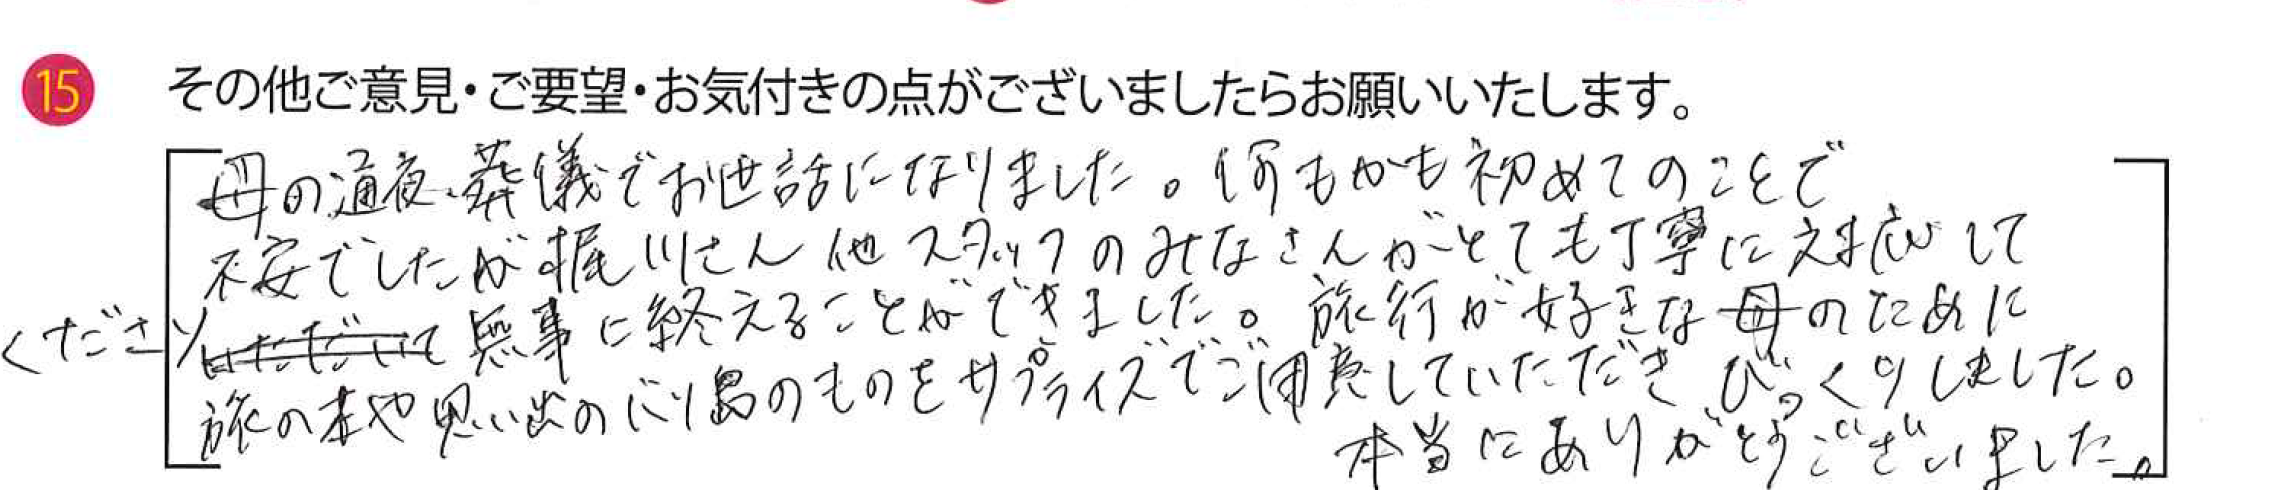 15 その他ご意見・ご要望・お気付きの点がございましたらお願いいたします。
母の通夜・葬儀でお世話になりました。何もかも初めてのことで
不安でしたが梶川さん他スタッフのみなさんがとても丁寧に対応して
くださり いただいて 無事に終えることができました。旅行が好きな母のために
旅の本や思い出のバリ島のものをサプライズでご用意していただきびっくりしました。
本当にありがとうございました。